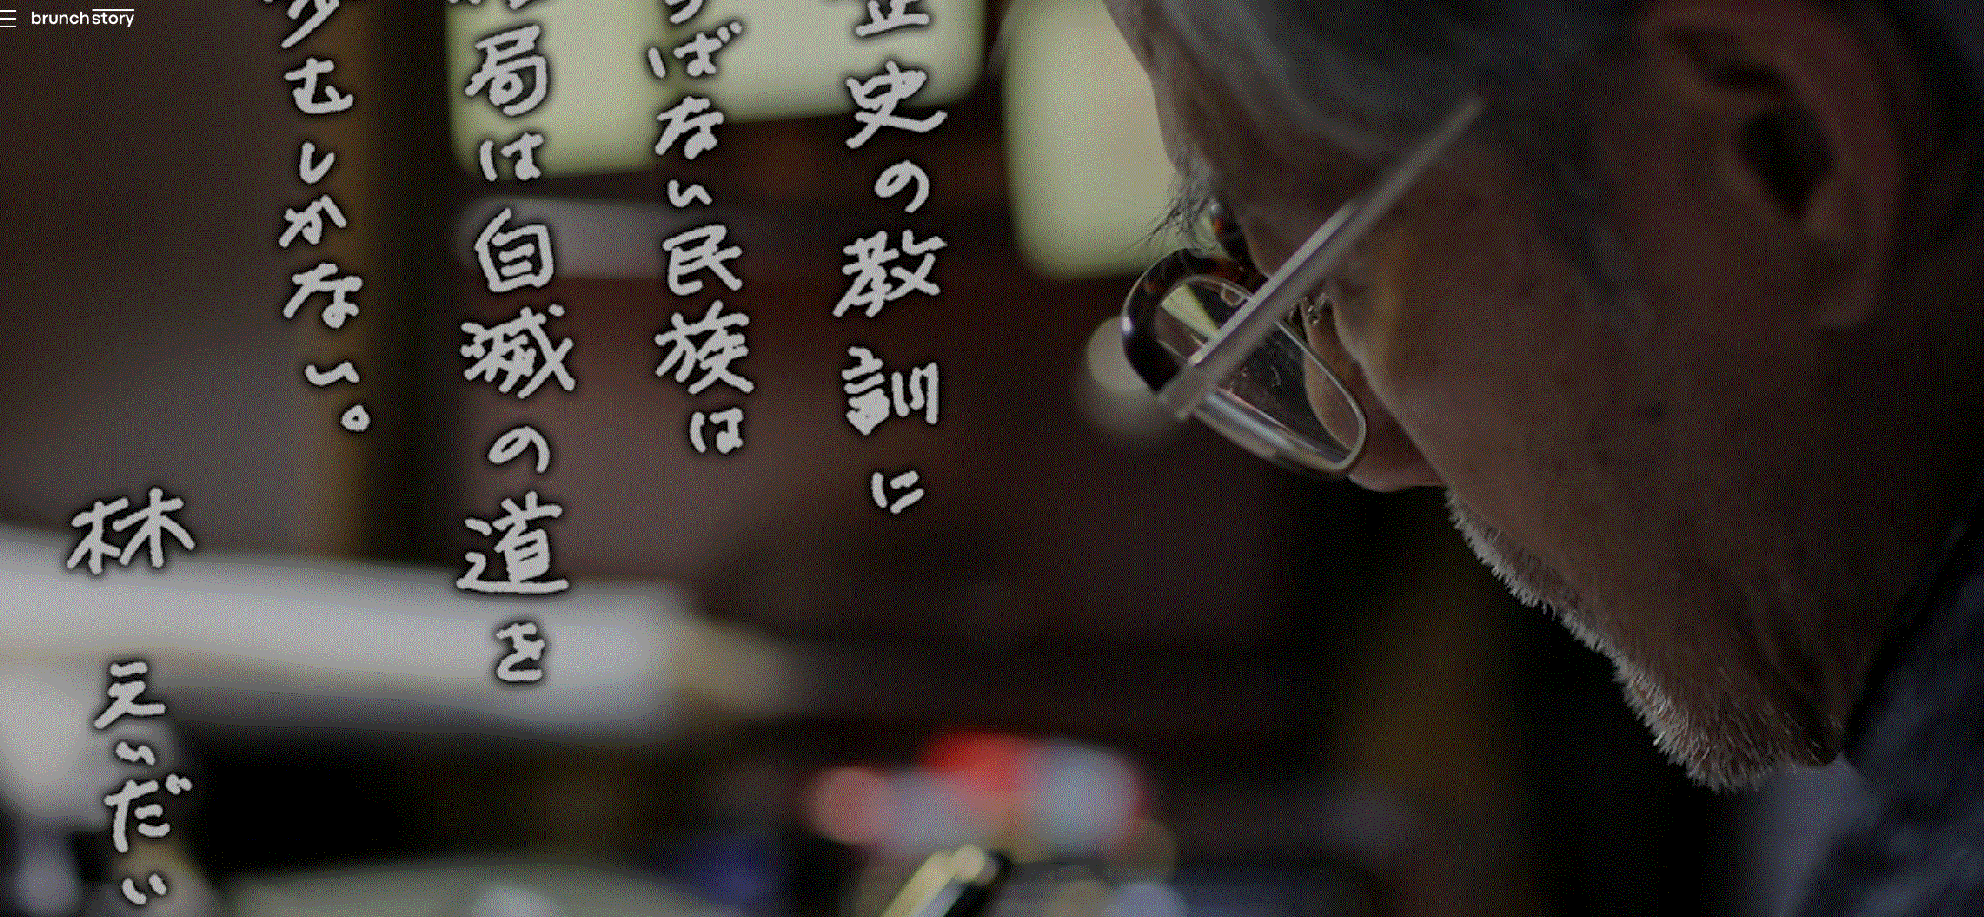 brunch story
史の教訓に
ばない民族は
局は自滅の道を
むしかない。
林
えいだい